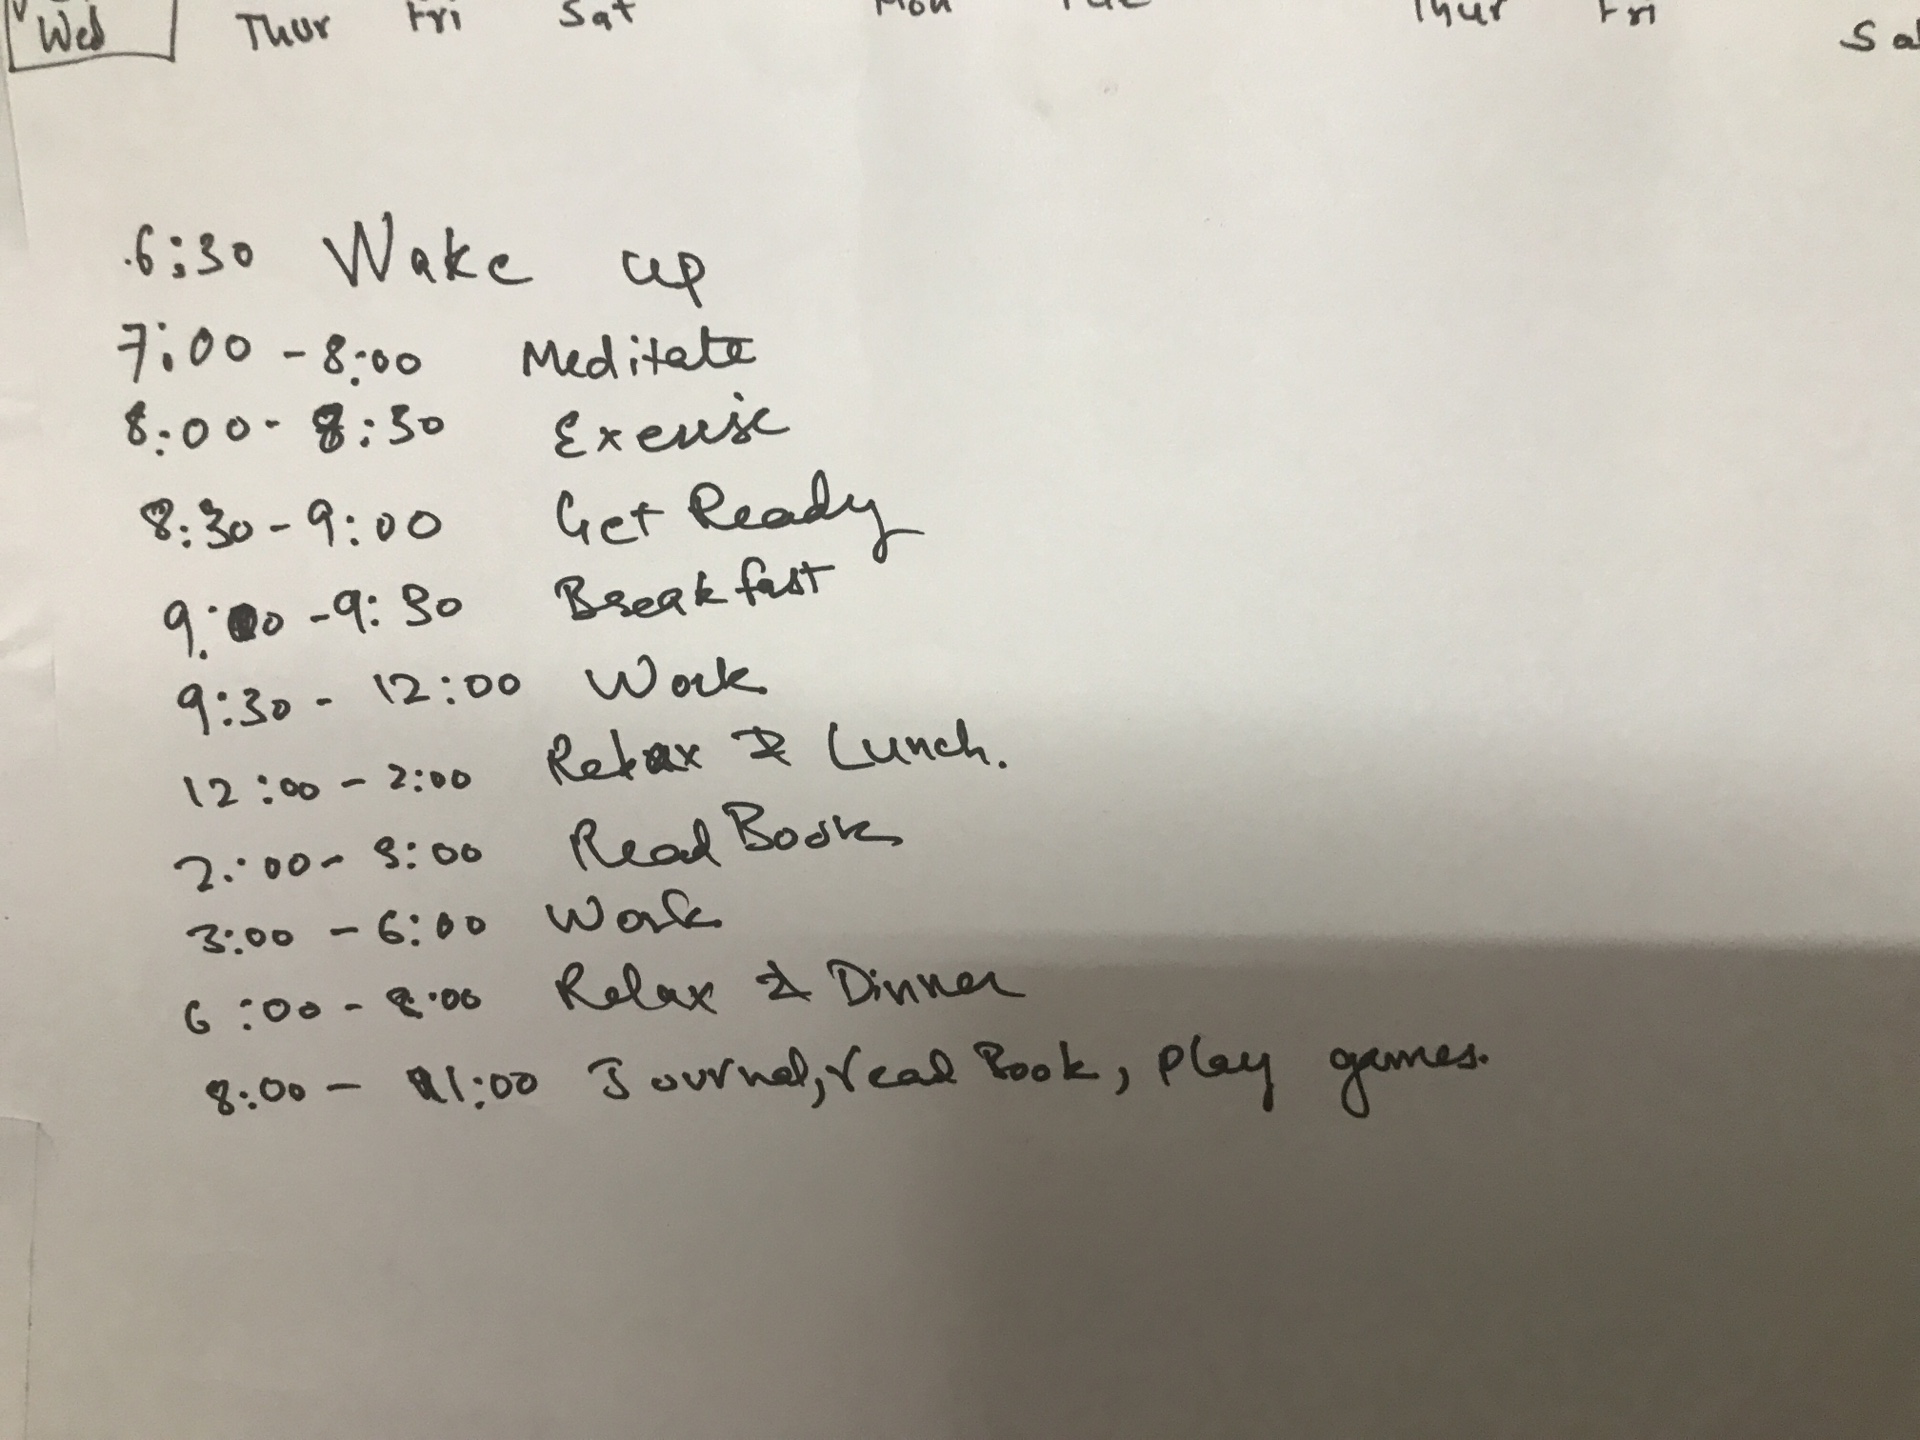 Wed Thur Fri Sat Mon Tue Thur Fri Sat
6:30 Wake up
7:00 - 8:00 Meditate
8:00 - 8:30 Exercise
8:30 - 9:00 Get Ready
9:00 - 9:30 Breakfast
9:30 - 12:00 Work
12:00 - 2:00 Relax & Lunch.
2:00 - 3:00 Read Book
3:00 - 6:00 Work
6:00 - 8:00 Relax & Dinner
8:00 - 11:00 Journal, read Book, play games.